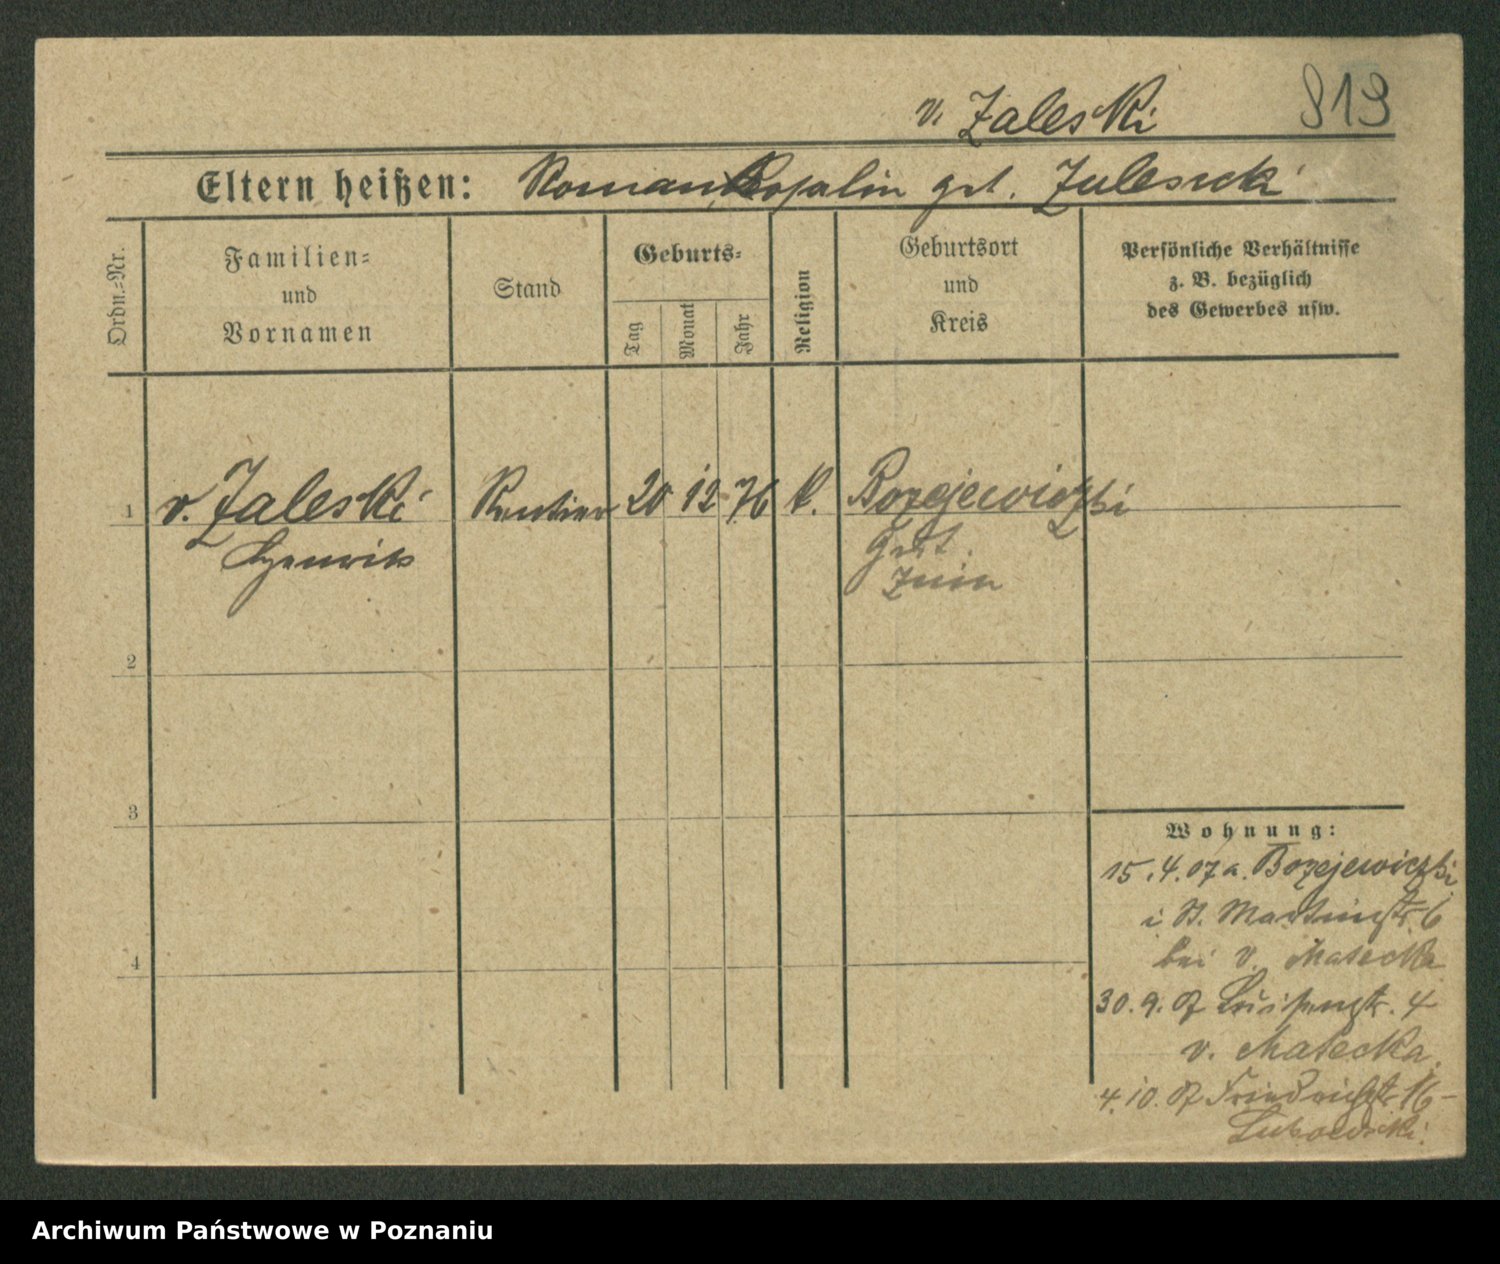 v. Zaleski
819
Eltern heißen: Roman, Rosalin geb.
Ordn.-Nr.
Familien-
und
Vornamen
Stand
Geburts-
Tag
Monat
Jahr
Religion
Geburtsort
und
Kreis
Persönliche Verhältnisse
z. B. bezüglich
des Gewerbes usw.
1 v. Zaleski Rentier 20 12 76 k. Bozejewiczki
Gut
Znin
2
3
4
Wohnung:
15.4.07 a. Bozejewiczki
i St. Martinstr. 6
bei v. Matecka
30.9. 07 Louisenstr. 4
v. Matecka
4.10. 07 Friedrichstr. 16